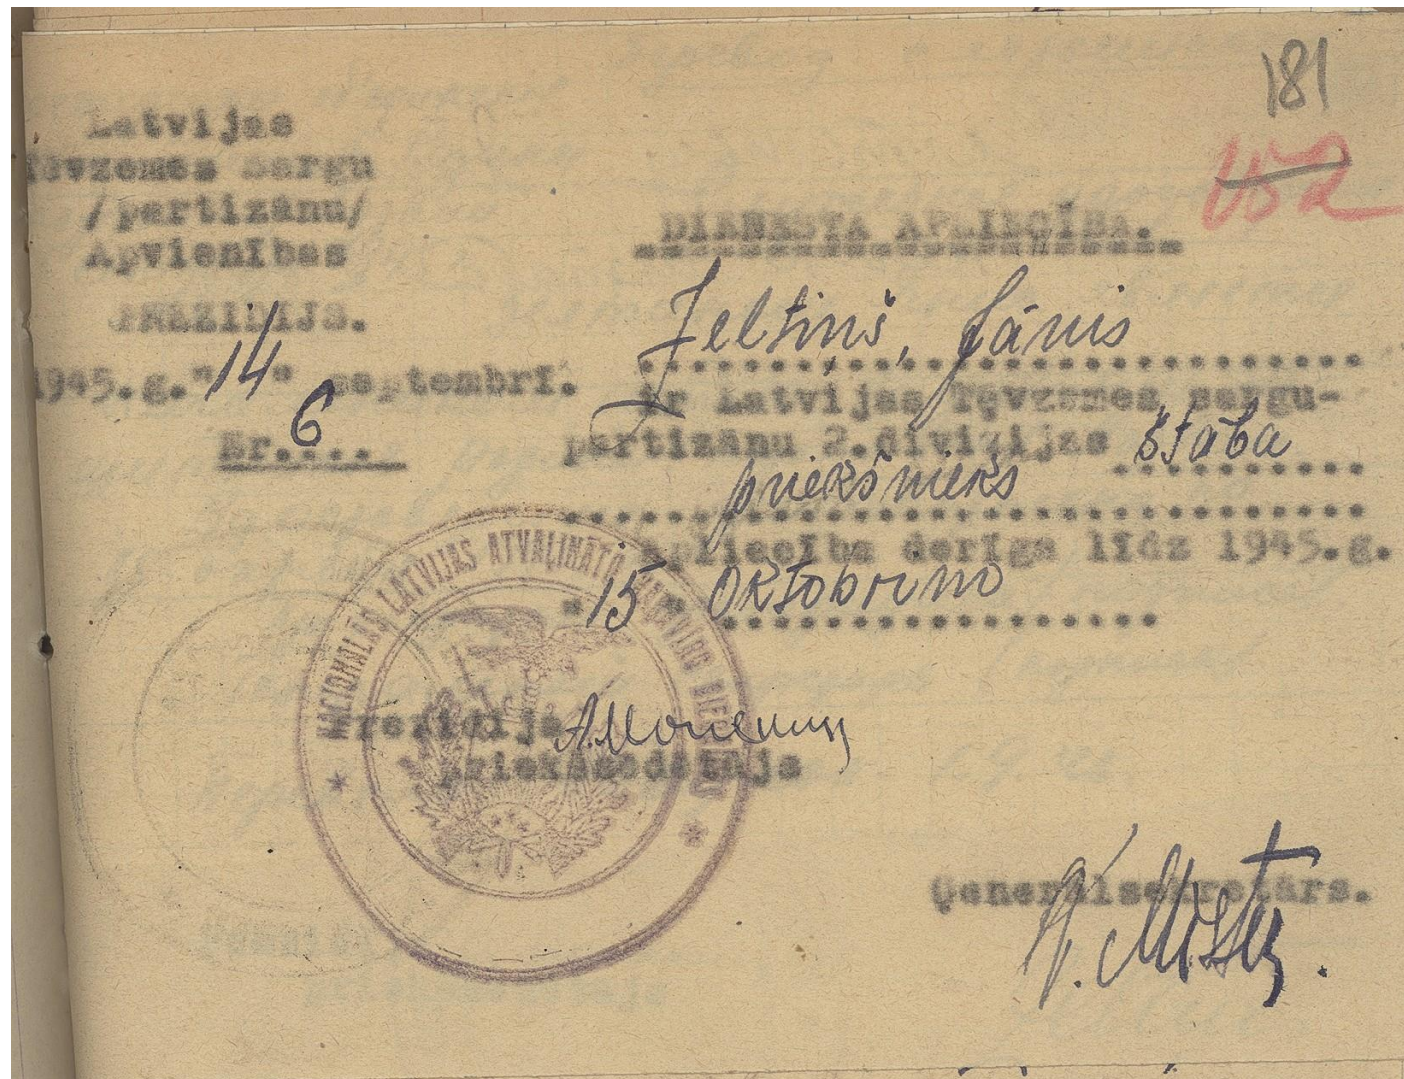 181
152
Latvijas
Tēvzemes Sargu
/partizānu/
Apvienības
PREZIDIJS.
1945.g."14" septembrī.
Nr. 6
DIENESTA APLIECĪBA.
Zeltiņš, Jānis
ir Latvijas Tēvzemes sargu-
partizānu 2.divizijas štāba
priekšnieks
Apliecība derīga līdz 1945.g.
"15" Oktobrim
NACIONĀLĀS LATVIJAS ATVAĻINĀTO
Prezidija
priekšsēdētājs
Ģenerālsekretārs.